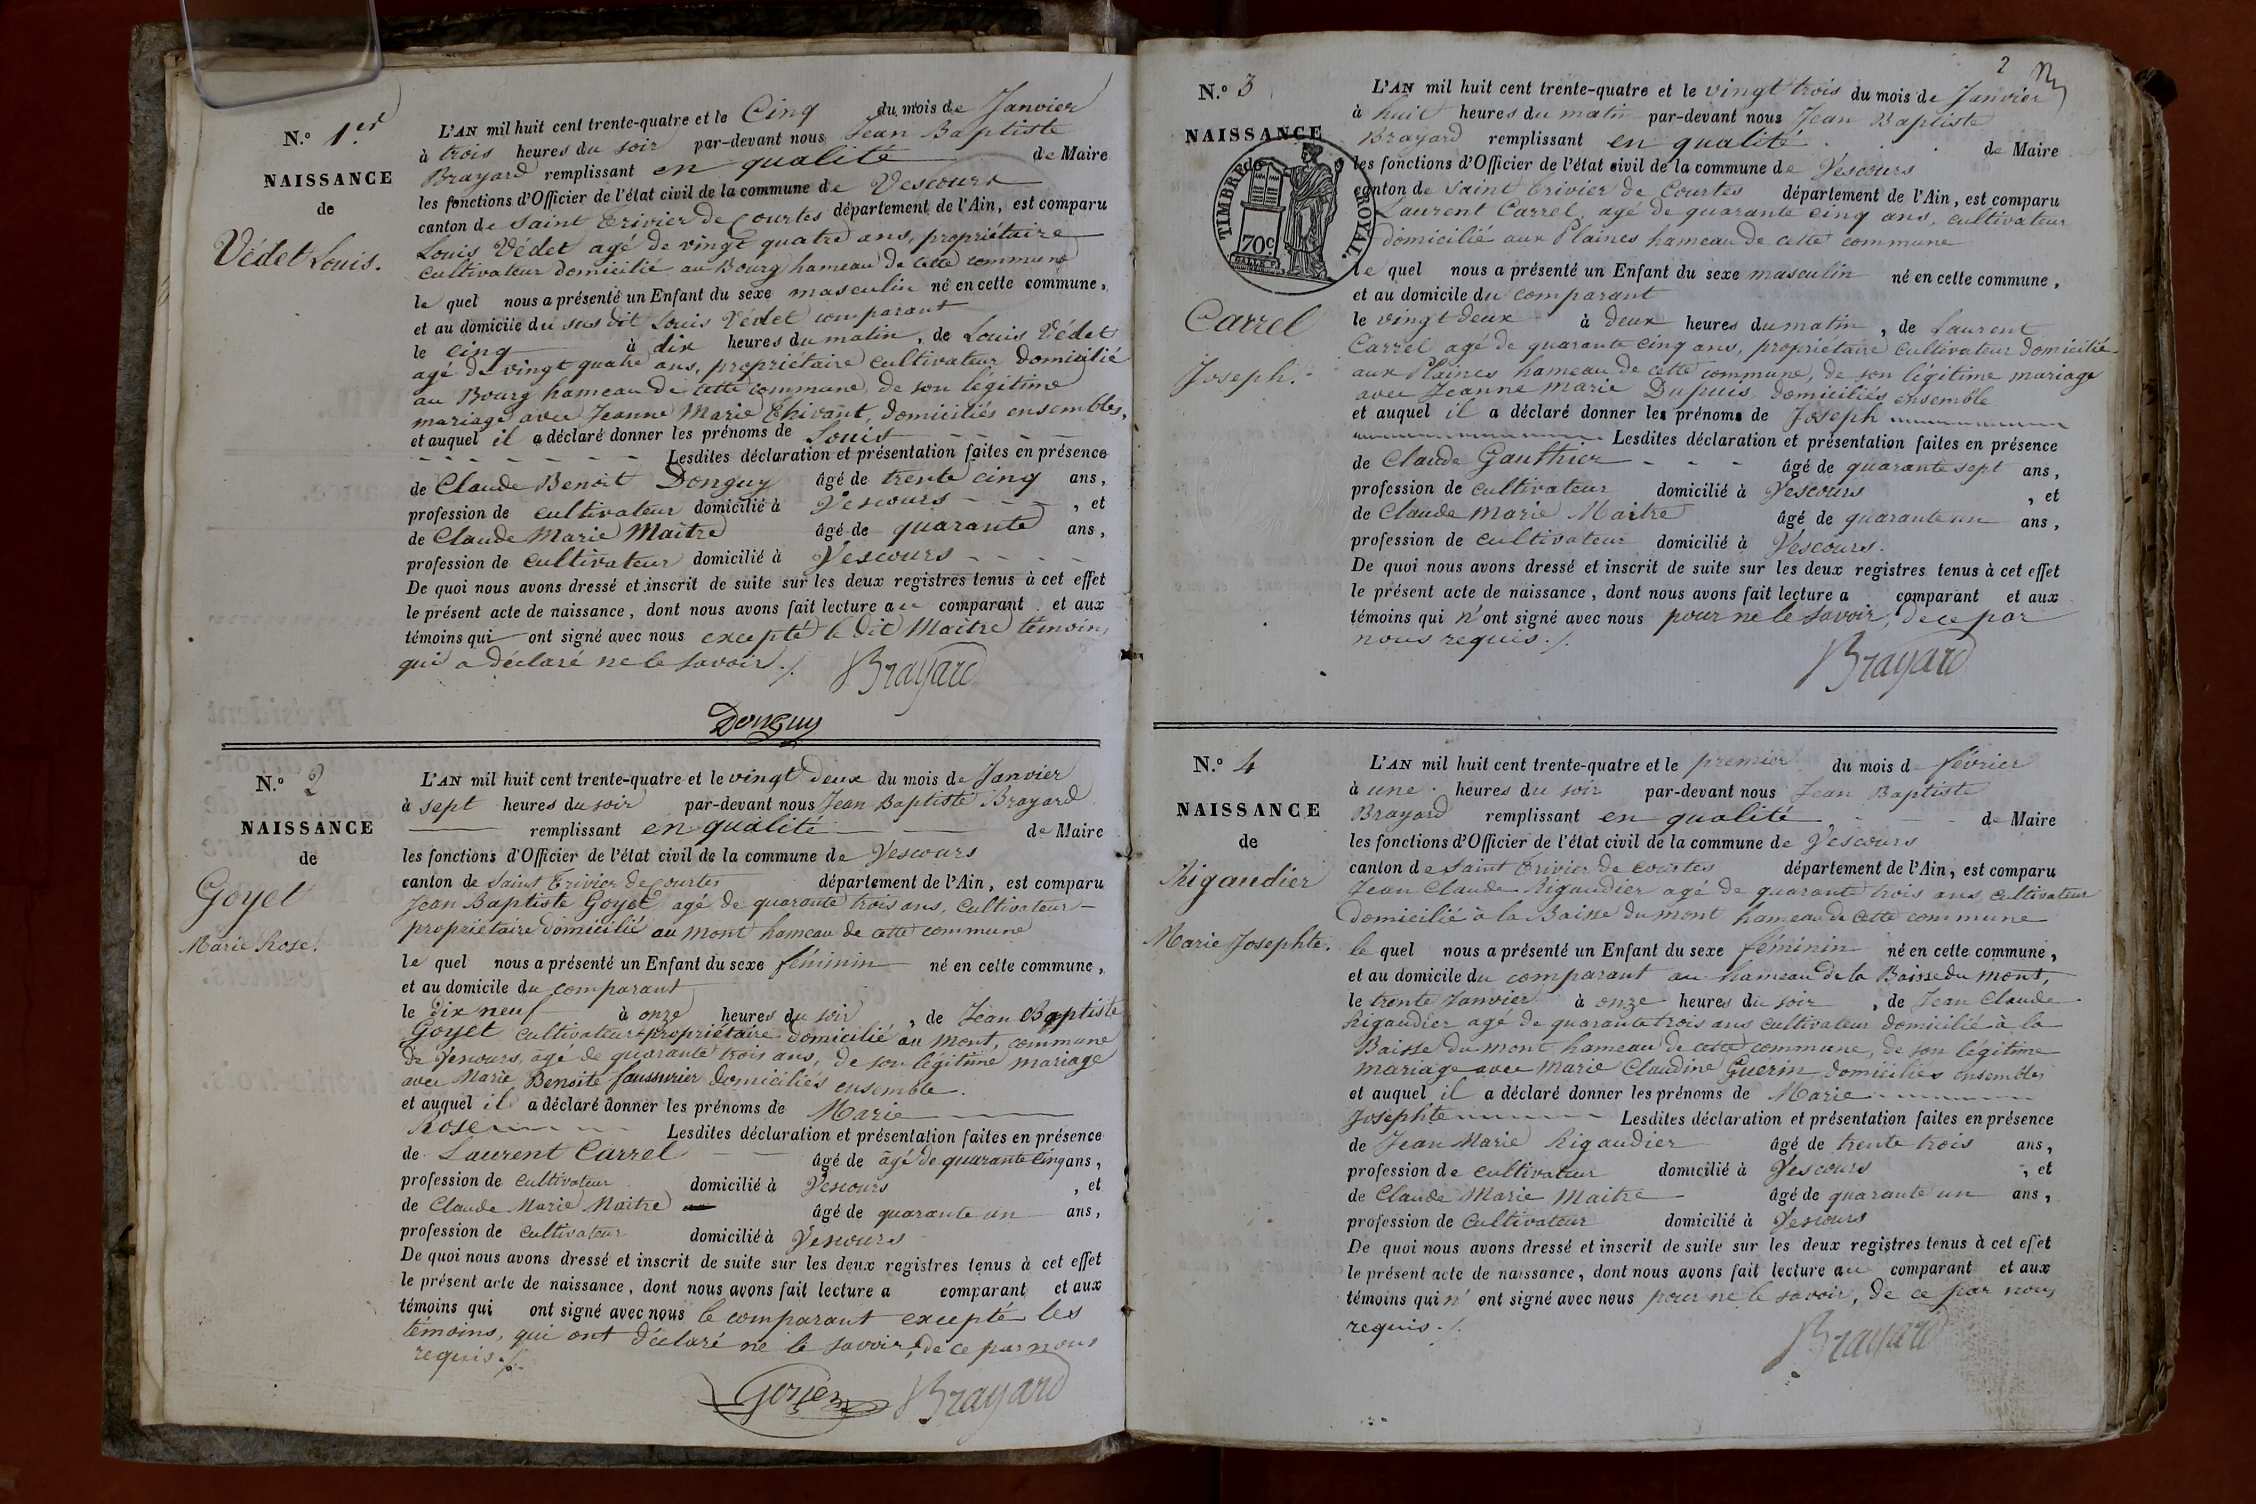 N.º 1.er
NAISSANCE
de
Védet Louis.
L'AN mil huit cent trente-quatre et le Cinq du mois de Janvier
à trois heures du soir par-devant nous Jean Baptiste
Brayard remplissant en qualité de Maire
les fonctions d'Officier de l'état civil de la commune de Vescours
canton de Saint Trivier de Courtes département de l'Ain, est comparu
Louis Védet agé de vingt quatre ans, propriétaire
cultivateur domicilié au Bourg hameau de cette commune
le quel nous a présenté un Enfant du sexe masculin né en cette commune,
et au domicile du sus dit Louis Védet comparant
le cinq à dix heures du matin, de Louis Védet
agé de vingt quatre ans, propriétaire cultivateur domicilié
au Bourg hameau de cette commune, de son légitime
mariage avec Jeanne Marie Thivant, domiciliés ensembles,
et auquel il a déclaré donner les prénoms de Louis
Lesdites déclaration et présentation faites en présence
de Claude Benoit Donguy âgé de trente cinq ans,
profession de cultivateur domicilié à Vescours, et
de Claude Marie Maitre âgé de quarante ans,
profession de cultivateur domicilié à Vescours
De quoi nous avons dressé et inscrit de suite sur les deux registres tenus à cet effet
le présent acte de naissance, dont nous avons fait lecture au comparant et aux
témoins qui ont signé avec nous excepté le dit Maitre témoin,
qui a déclaré ne le savoir ./.
Brayard
Donguy
N.º 2
NAISSANCE
de
Goyet
Marie Rose.
L'AN mil huit cent trente-quatre et le vingt deux du mois de Janvier
à sept heures du soir par-devant nous Jean Baptiste Brayard
remplissant en qualité de Maire
les fonctions d'Officier de l'état civil de la commune de Vescours
canton de Saint Trivier de Courtes département de l'Ain, est comparu
Jean Baptiste Goyet agé de quarante trois ans, cultivateur
propriétaire domicilié au mont hameau de cette commune
le quel nous a présenté un Enfant du sexe féminin né en cette commune,
et au domicile du comparant
le dix neuf à onze heures du soir, de Jean Baptiste
Goyet cultivateur propriétaire domicilié au mont, commune
de Vescours, agé de quarante trois ans, de son légitime mariage
avec Marie Benoite saussurier domiciliés ensemble.
et auquel il a déclaré donner les prénoms de Marie
Rose Lesdites déclaration et présentation faites en présence
de Laurent Carrel âgé de âgé de quarante cinq ans,
profession de cultivateur domicilié à Vescours, et
de Claude Marie Maitre âgé de quarante un ans,
profession de cultivateur domicilié à Vescours
De quoi nous avons dressé et inscrit de suite sur les deux registres tenus à cet effet
le présent acte de naissance, dont nous avons fait lecture a comparant et aux
témoins qui ont signé avec nous le comparant excepté les
témoins, qui ont déclaré ne le savoir, de ce par nous
requis ./.
Brayard
2
N.º 3
NAISSANCE
TIMBRE ROYAL.
70c
Carrel
Joseph.
L'AN mil huit cent trente-quatre et le vingt trois du mois de Janvier
à huit heures du matin par-devant nous Jean Baptiste
Brayard remplissant en qualité de Maire
les fonctions d'Officier de l'état civil de la commune de Vescours
canton de Saint Trivier de Courtes département de l'Ain, est comparu
Laurent Carrel, agé de quarante cinq ans, cultivateur
domicilié aux Plaines hameau de cette commune
le quel nous a présenté un Enfant du sexe masculin né en cette commune,
et au domicile du comparant
le vingt deux à deux heures du matin, de Laurent
Carrel agé de quarante cinq ans, propriétaire cultivateur domicilié
aux Plaines hameau de cette commune, de son légitime mariage
avec Jeanne Marie Dupuis, domiciliés ensemble
et auquel il a déclaré donner les prénoms de Joseph
Lesdites déclaration et présentation faites en présence
de Claude Gauthier âgé de quarante sept ans,
profession de cultivateur domicilié à Vescours, et
de Claude Marie Maitre âgé de quarante un ans,
profession de cultivateur domicilié à Vescours.
De quoi nous avons dressé et inscrit de suite sur les deux registres tenus à cet effet
le présent acte de naissance, dont nous avons fait lecture a comparant et aux
témoins qui n'ont signé avec nous pour ne le savoir, de ce par
nous requis ./.
Brayard
N.º 4
NAISSANCE
de
Rigaudier
Marie Josephte.
L'AN mil huit cent trente-quatre et le premier du mois de février
à une heures du soir par-devant nous Jean Baptiste
Brayard remplissant en qualité de Maire
les fonctions d'Officier de l'état civil de la commune de Vescours
canton de Saint Trivier de courtes département de l'Ain, est comparu
Jean Claude Rigaudier agé de quarante trois ans cultivateur
domicilié à la Baisse du mont hameau de cette commune
le quel nous a présenté un Enfant du sexe féminin né en cette commune,
et au domicile du comparant au hameau de la Baisse du mont,
le trente Janvier à onze heures du soir, de Jean Claude
Rigaudier agé de quarante trois ans cultivateur domicilié à la
Baisse du mont, hameau de cette commune, de son légitime
mariage avec Marie Claudine Guerin domiciliés ensembles
et auquel il a déclaré donner les prénoms de Marie
Josephte Lesdites déclaration et présentation faites en présence
de Jean Marie Rigaudier âgé de trente trois ans,
profession de cultivateur domicilié à Vescours, et
de Claude Marie Maitre âgé de quarante un ans,
profession de cultivateur domicilié à Vescours
De quoi nous avons dressé et inscrit de suite sur les deux registres tenus à cet effet
le présent acte de naissance, dont nous avons fait lecture au comparant et aux
témoins qui n'ont signé avec nous pour ne le savoir, de ce par nous
requis ./.
Brayard